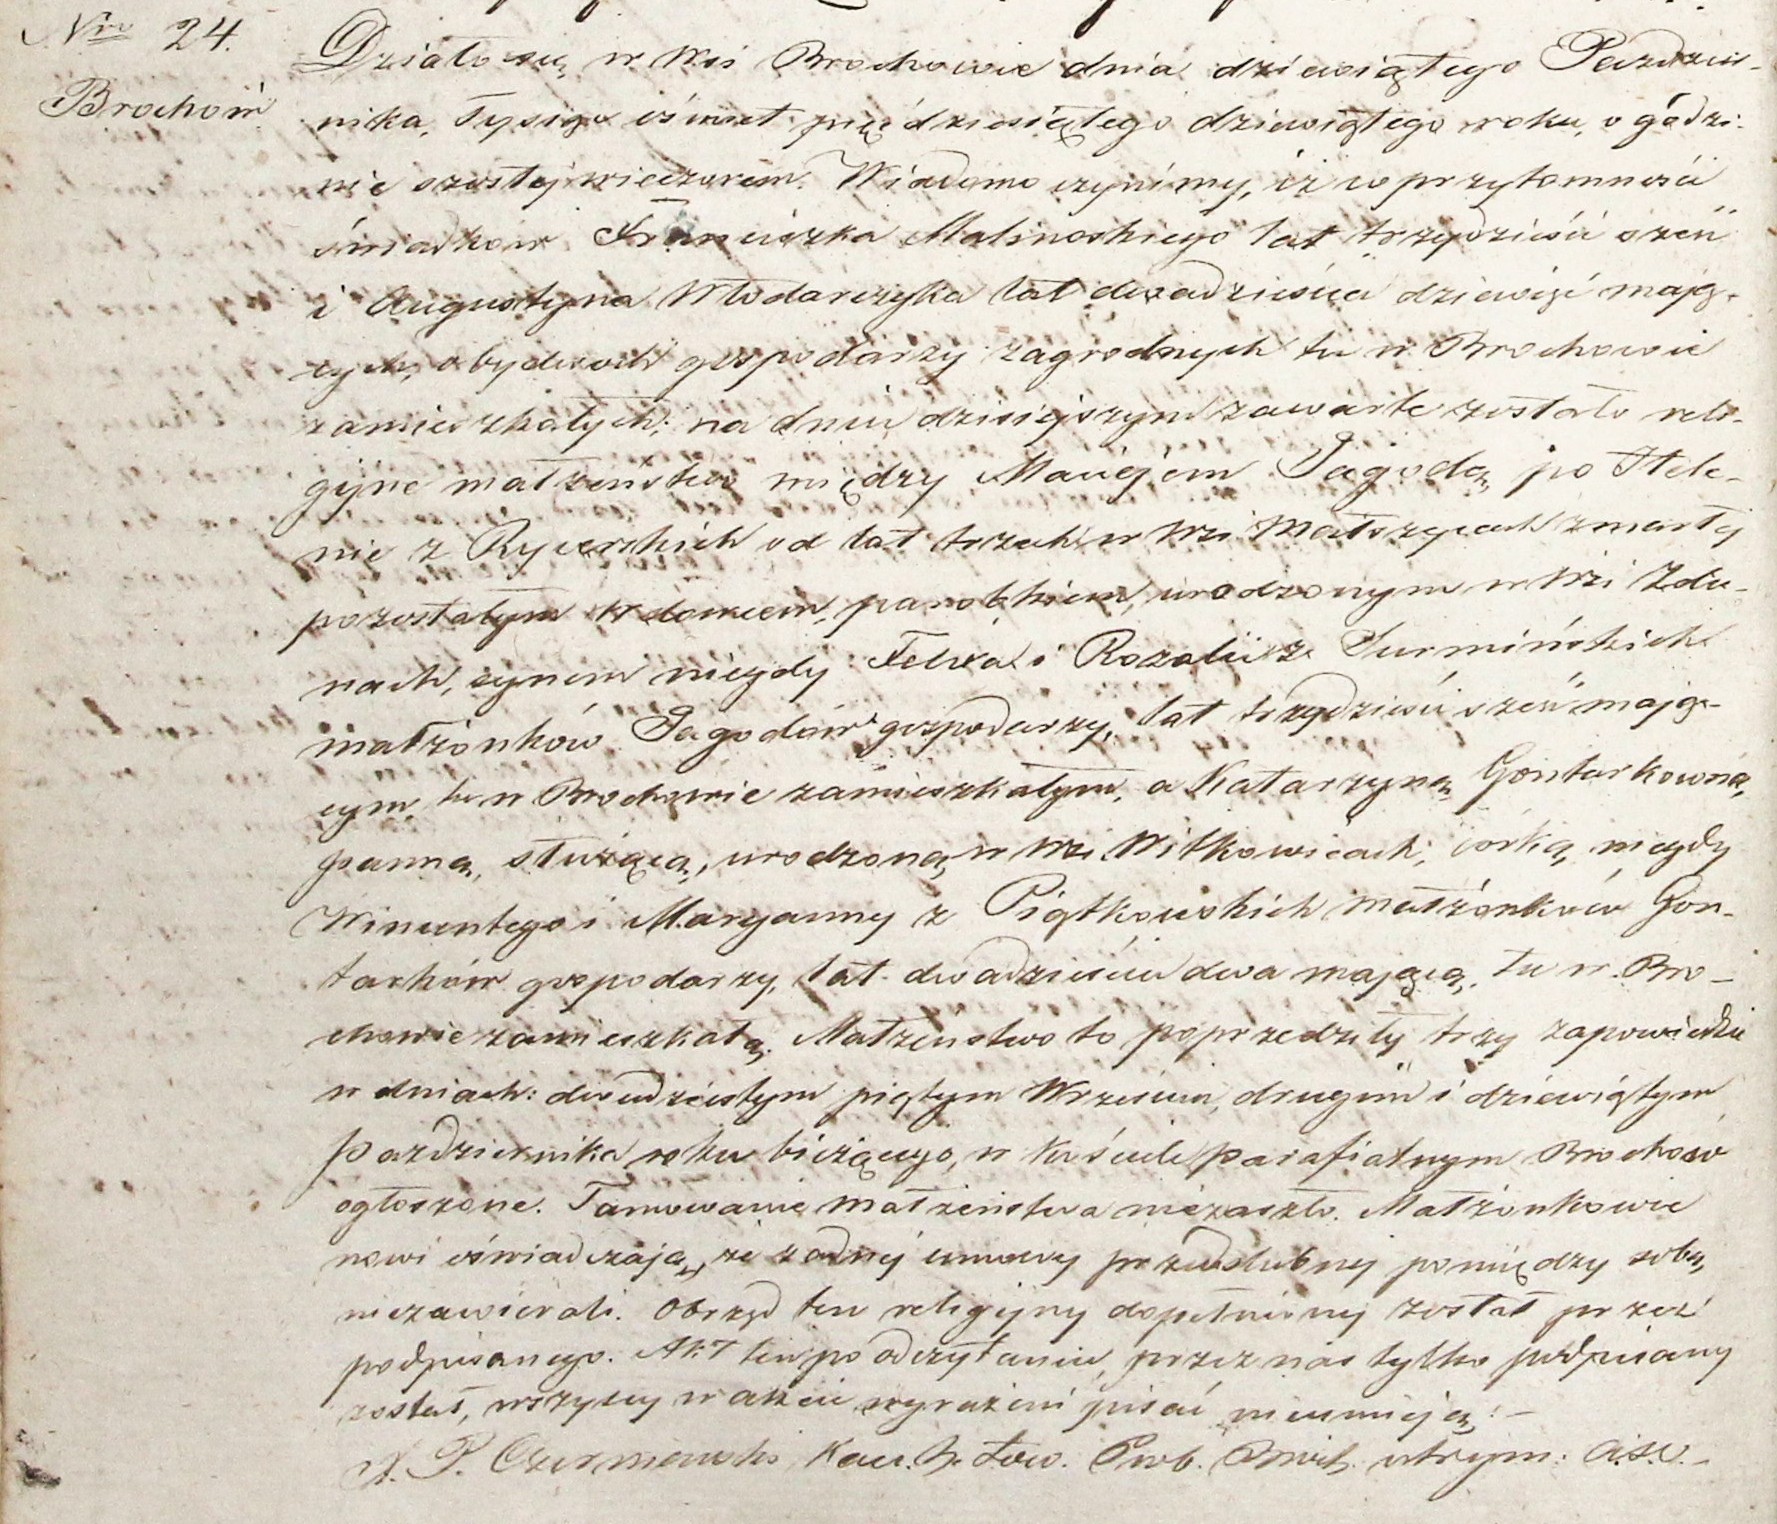 Nro 24.
Brochów
Działo się w Wsi Brochowie dnia dziewiątego Pazdzier-
nika, tysiąc ośmset pięćdziesiątego dziewiątego roku, o godzi-
nie szóstej wieczorem. Wiadomo czynimy, iż w przytomności
świadków Franciszka Malinoskiego lat trzydzieści sześć
i Augustyna Włodarczyka lat dwadzieścia dziewięć mają-
cych, obydwóch gospodarzy zagrodnych tu w Brochowie
zamieszkałych; na dniu dzisiejszym zawarte zostało reli-
gijne małżeństwo między Maciejem Jagodą, po Hele-
nie z Rycerskich od lat trzech w Wsi Małszycach zmarłej
pozostałym wdowcem, parobkiem, urodzonym w Wsi Zdu-
nach, synem niegdy Felixa i Rozalii z Surmińskich
małżonków Jagodów gospodarzy, lat trzydzieści sześć mają-
cym, tu w Brochowie zamieszkałym, a Katarzyną Gontarkowną,
panną, służącą, urodzoną w Wsi Witkowicach, córką niegdy
Wincentego i Maryanny z Piątkowskich małżonków Gon-
tarków gospodarzy, lat dwadzieścia dwa mającą, tu w Bro-
chowie zamieszkałą. Małżeństwo to poprzedziły trzy zapowiedzie
w dniach: dwudziestym piątym Września, drugim i dziewiątym
pazdziernika roku bieżącego, w kościele parafialnym Brochów
ogłoszone. Tamowanie małżeństwa niezaszło. Małżonkowie
nowi oświadczają, że żadnej umowy przedślubnej pomiędzy sobą
niezawierali. Obrzęd ten religijny dopełniony został przez
podpisanego. Akt ten po odczytaniu, przez nas tylko podpisany
został, wszyscy w akcie wyrażeni pisać nieumieją. –
X. P. Czermiewski Kan. H. Łow. Prob. Broch. utrzym: A.S.C. –